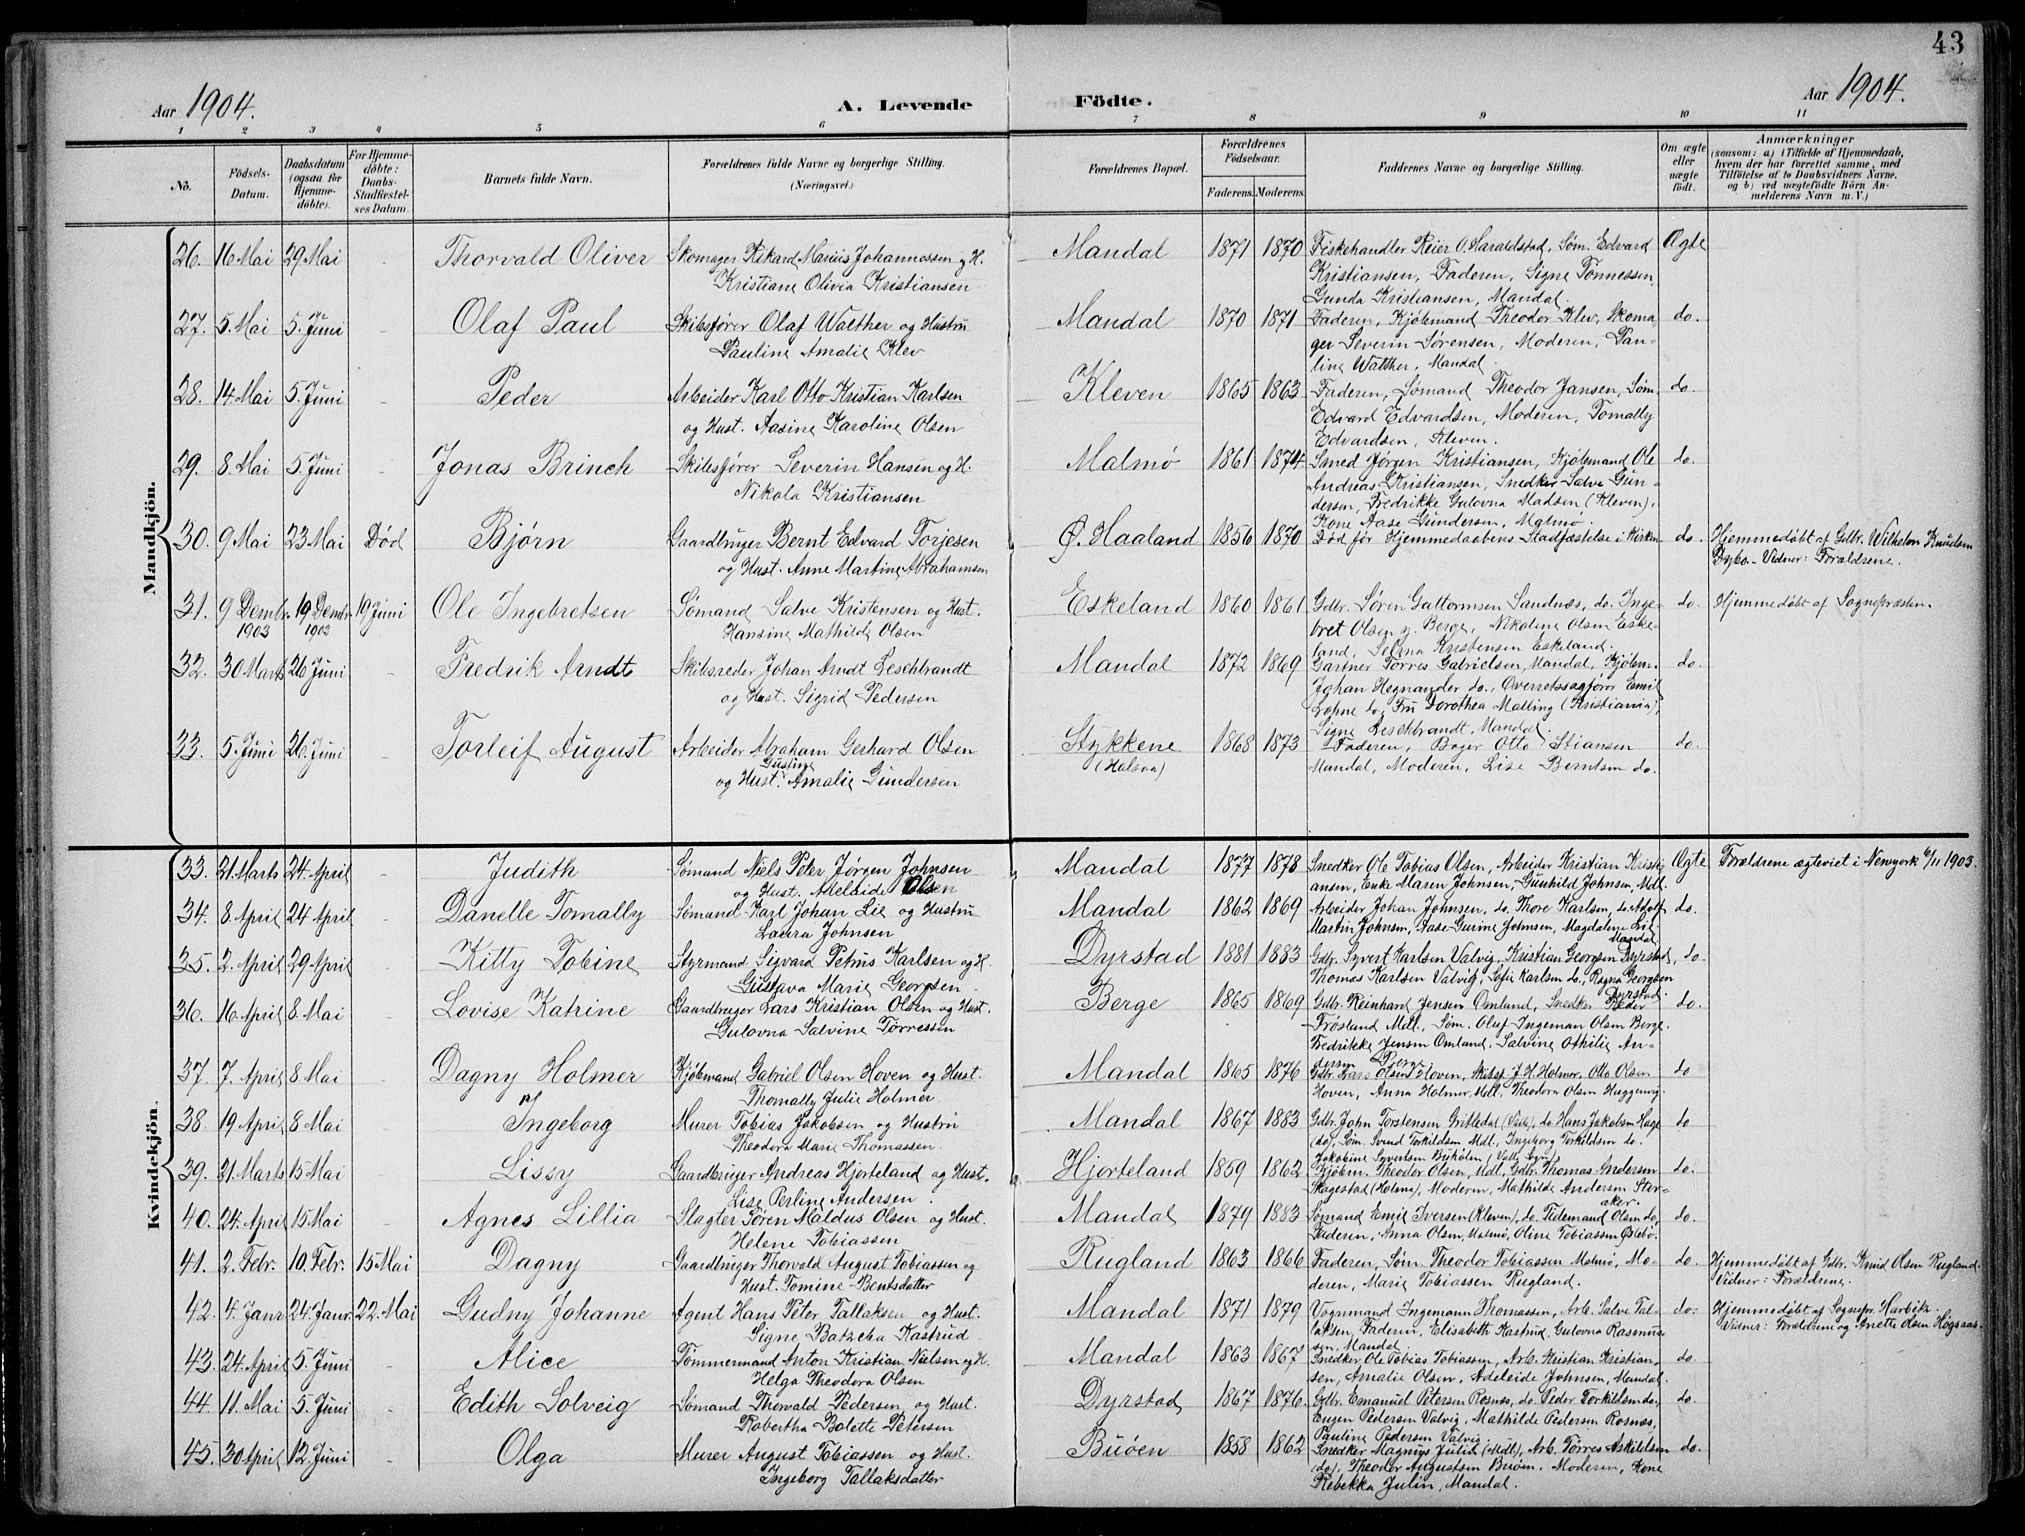 43
Aar 1904.
A. Levende Födte.
Aar 1904.
1 2 3 4 5 6 7 8 9 10 11
No.
Fødsels-Datum.
Daabsdatum (ogsaa for Hjemmedöbte).
For Hjemmedöbte: Daabs-Stadfæstelses Datum.
Barnets fulde Navn.
Forældrenes fulde Navne og borgerlige Stilling.
(Næringsvei.)
Forældrenes Bopæl.
Forældrenes Födselsaar.
Faderens. Moderens.
Faddernes Navne og borgerlige Stilling.
Om ægte eller uægte födt.
Anmærkninger
(saasom: a) i Tilfælde af Hjemmedaab, hvem der har forrettet samme, med Tilföielse af to Daabsvidners Navne. og b) ved uægtefödte Börn Anmelderens Navn m. V.)
Mandkjön.
26. 16 Mai 29 Mai - Thorvald Oliver Skomager Rikard Marius Johannessen og H. Mandal 1871 1870 Fiskehandler Reier O. Haraldstad, Søm. Edvard Ægte
Kristiane Olivia Kristiansen Kristiansen, Faderen, Signe Tønnessen,
Gunda Kristiansen, Mandal.
27. 5 Mai 5. Juni - Olaf Paul Skibsfører Olaf Walther og Hustru Mandal 1870 1871 Faderen, Kjøbmand Theodor Klev, Skoma- do.
Pauline Amalie Klev ger Severin Sørensen, Moderen, Pau-
line Walther, Mandal.
28. 14 Mai 5. Juni - Peder Arbeider Karl Otto Kristian Karlsen Kleven 1865 1863 Faderen, Sømand Theodor Jansen, Søm. do.
og Hust. Aasine Karoline Olsen Edvard Edvardsen, Moderen, Tomally
Edvardsen, Kleven.
29. 8 Mai 5. Juni - Jonas Brinch Skibsfører Severin Hansen og H. Malmø 1861 1874 Smed Jørgen Kristiansen, Kjøbmand Ole do.
Nikola Kristiansen Andreas Kristiansen, Snedker Salve Gun-
dersen, Fredrikke Gulovna Madsen (Kleven),
Kone Aase Gundersen, Malmø.
30. 9 Mai 23 Mai Død Bjørn Gaardbruger Bernt Edvard Torjesen Ø. Haaland 1856 1870 Død før Hjemmedaabens Stadfæstelse i Kirken do. Hjemmedøbt af Gdbr. Wilhelm Knudsen
og Hust. Anne Martine Abrahamsen Dybo. Vidner: Forældrene.
31. 9 Dembr. 1903 19 Dembr. 1903 19 Juni Ole Ingebretsen Sømand Salve Kristensen og Hust. Eskeland 1860 1861 Gdbr. Søren Guttormsen Sandnæs, do. Inge- do. Hjemmedøbt af Sognepræsten.
Hansine Mathilde Olsen bret Olsen y. Berge, Nikoline Olsen Eske-
land, Selma Kristensen Eskeland.
32. 30 Marts 26 Juni - Fredrik Arndt Skibsreder Johan Arndt Leschbrandt Mandal 1872 1869 Gartner Tørres Gabrielsen, Mandal, Kjøbm. do.
og Hust. Sigrid Pedersen Johan Hegnander do., Overretssagfører Emil
Lohne do. Fru Dorothea Malling (Kristiania),
Signe Leschbrandt, Mandal.
33. 5. Juni 26. Juni - Torleif August Arbeider Abraham Gerhard Olsen Stykkene 1868 1873 Faderen, Bager Otto Stiansen do.
og Hust. Gustine Amalie Gundersen (Halsaa) Mandal, Moderen, Lise Berntsen do.
Kvindekjön.
33. 21 Marts 24 April - Judith Sømand Niels Peter Jørgen Johnsen Mandal 1877 1878 Snedker Ole Tobias Olsen, Arbeider Kristian Kristi- Ægte Forældrene ægteviet i Newyork 6/11 1903.
og Hust. Adelaide Olsen ansen, Enke Maren Johnsen, Gunhild Johnsen, Mdl.
34. 8 April 24 April - Danelle Tomally Sømand Karl Johan Lie og Hustru Mandal 1862 1869 Arbeider Johan Johnsen, do. Thore Karlsen, do. Adolf do.
Laura Johnsen Martin Johnsen, Aase Gurine Johnsen, Magdalene Lie Mandal
35. 2. April 29 April - Kitty Tobine Styrmand Sigvard Petrus Karlsen og H. Dyrstad 1881 1883 Gdbr. Syvert Karlsen Valvig, Kristian Georgsen Dyrstad, do.
Gustava Marie Georgsen. Thomas Karlsen Valvig, Sofie Karlsen do., Ragna Georgsen Dyrstad.
36. 16 April 8 Mai - Lovise Katrine Gaardbruger Lars Kristian Olsen og Hust. Berge 1865 1869 Gdbr. Reinhard Jensen Omland, Snedker Peder do.
Gulovna Salvine Tørressen Frøsland Mdl., Søm. Oluf Ingeman Olsen Berge.
Fredrikke Jensen Omland, Salvine Othilie An-
dersen Berge
37. 7. April 8 Mai - Dagny Holmer Kjøbmand Gabriel Olsen Hoven og Hust. Mandal 1865 1876 Gdbr. Lars Olsen Hoven, Skibsf. J. H. Holmer, Otto Olsen do
Thomally Julie Holmer. Hoven, Anna Holmer, Mdl., Theodora Olsen
38. 19 April 8 Mai - Ingeborg Murer Tobias Jakobsen og Hustru Mandal 1867 1883 Gdbr. John Torstensen do Hans Jakobsen do
Theodora Marie Thomassen. (do), Søm. Svend Torkildsen Mdl., Ingeborg Torkildsen do.
Jakobine Syvertsen
39. 21 Marts 15 Mai - Lissy Gaardbruger Andreas Hjorteland og Hust. Hjorteland 1859 1862 Kjøbm. Theodor Olsen, Mdl. Gdbr. Thomas Andersen do.
Lise Perline Andersen. Skagestad (Holme), Moderen, Mathilde Andersen Stor-
aker
40. 24. April 15 Mai - Agnes Lillia Slagter Søren Maldus Olsen og Hust. Mandal 1879 1883 Sømand Emil Iversen (Kleven), do. Tidemand Olsen do, do.
Helene Tobiassen Faderen, Anna Olsen, Malmø, Oline Tobiassen
41. 2. Febr. 10. Febr. 15 Mai Dagny Gaardbruger Thorvald August Tobiassen og Rugland 1863 1866 Faderen, Søm. Theodor Tobiassen Malmø, Mo- do. Hjemmedøbt af Gdbr. Knud Olsen Rugland.
Hust. Tomine Bentsdatter deren, Marie Tobiassen Rugland. Vidner: Forældrene.
42. 4. Janr. 24. Janr. 22. Mai Gudny Johanne Agent Hans Peter Tallaksen og Hust. Mandal 1871 1879 Vognmand Ingemann Thomassen, Arb. Salve Tal- do. Hjemmedøbt af Sognepr. Harbitz.
Signe Batzeba Kastrud laksen, Faderen, Elisabeth Kastrud, Gulovna Rasmus- Vidner: Forældrene og Anette Olsen Høgsaas.
sen, Mandal
43. 24. April 5. Juni - Alice Tømmermand Anton Kristian Nielsen og H. Mandal 1863 1867 Snedker Ole Tobias Tobiassen, Arb. Kristian Kristian- do.
Helga Theodora Olsen sen, Amalie Olsen, Adeleide Johnsen, Mandal.
44. 11. Mai 5. Juni - Edith Solveig Sømand Thorvald Pedersen og Hust. Dyrstad 1867 1876. Gdbr. Emanuel Petersen Rosnæs, do. Peder Torkildsen do., do.
Robertha Bolette Petersen Eugen Pedersen Valvig, Mathilde Pedersen Rosnæs,
Pauline Pedersen Valvig.
45. 30 April 12. Juni - Olga Murer August Tobiassen og Hust. Buøen 1858 1862 Snedker Magnus Julin (Mdl), Arb. Tørres Askildsen do.
Ingeborg Tallaksdatter (do), Theodor Augustsen Buøen. Moderen, Kone
Rebekka Julin, Mandal.